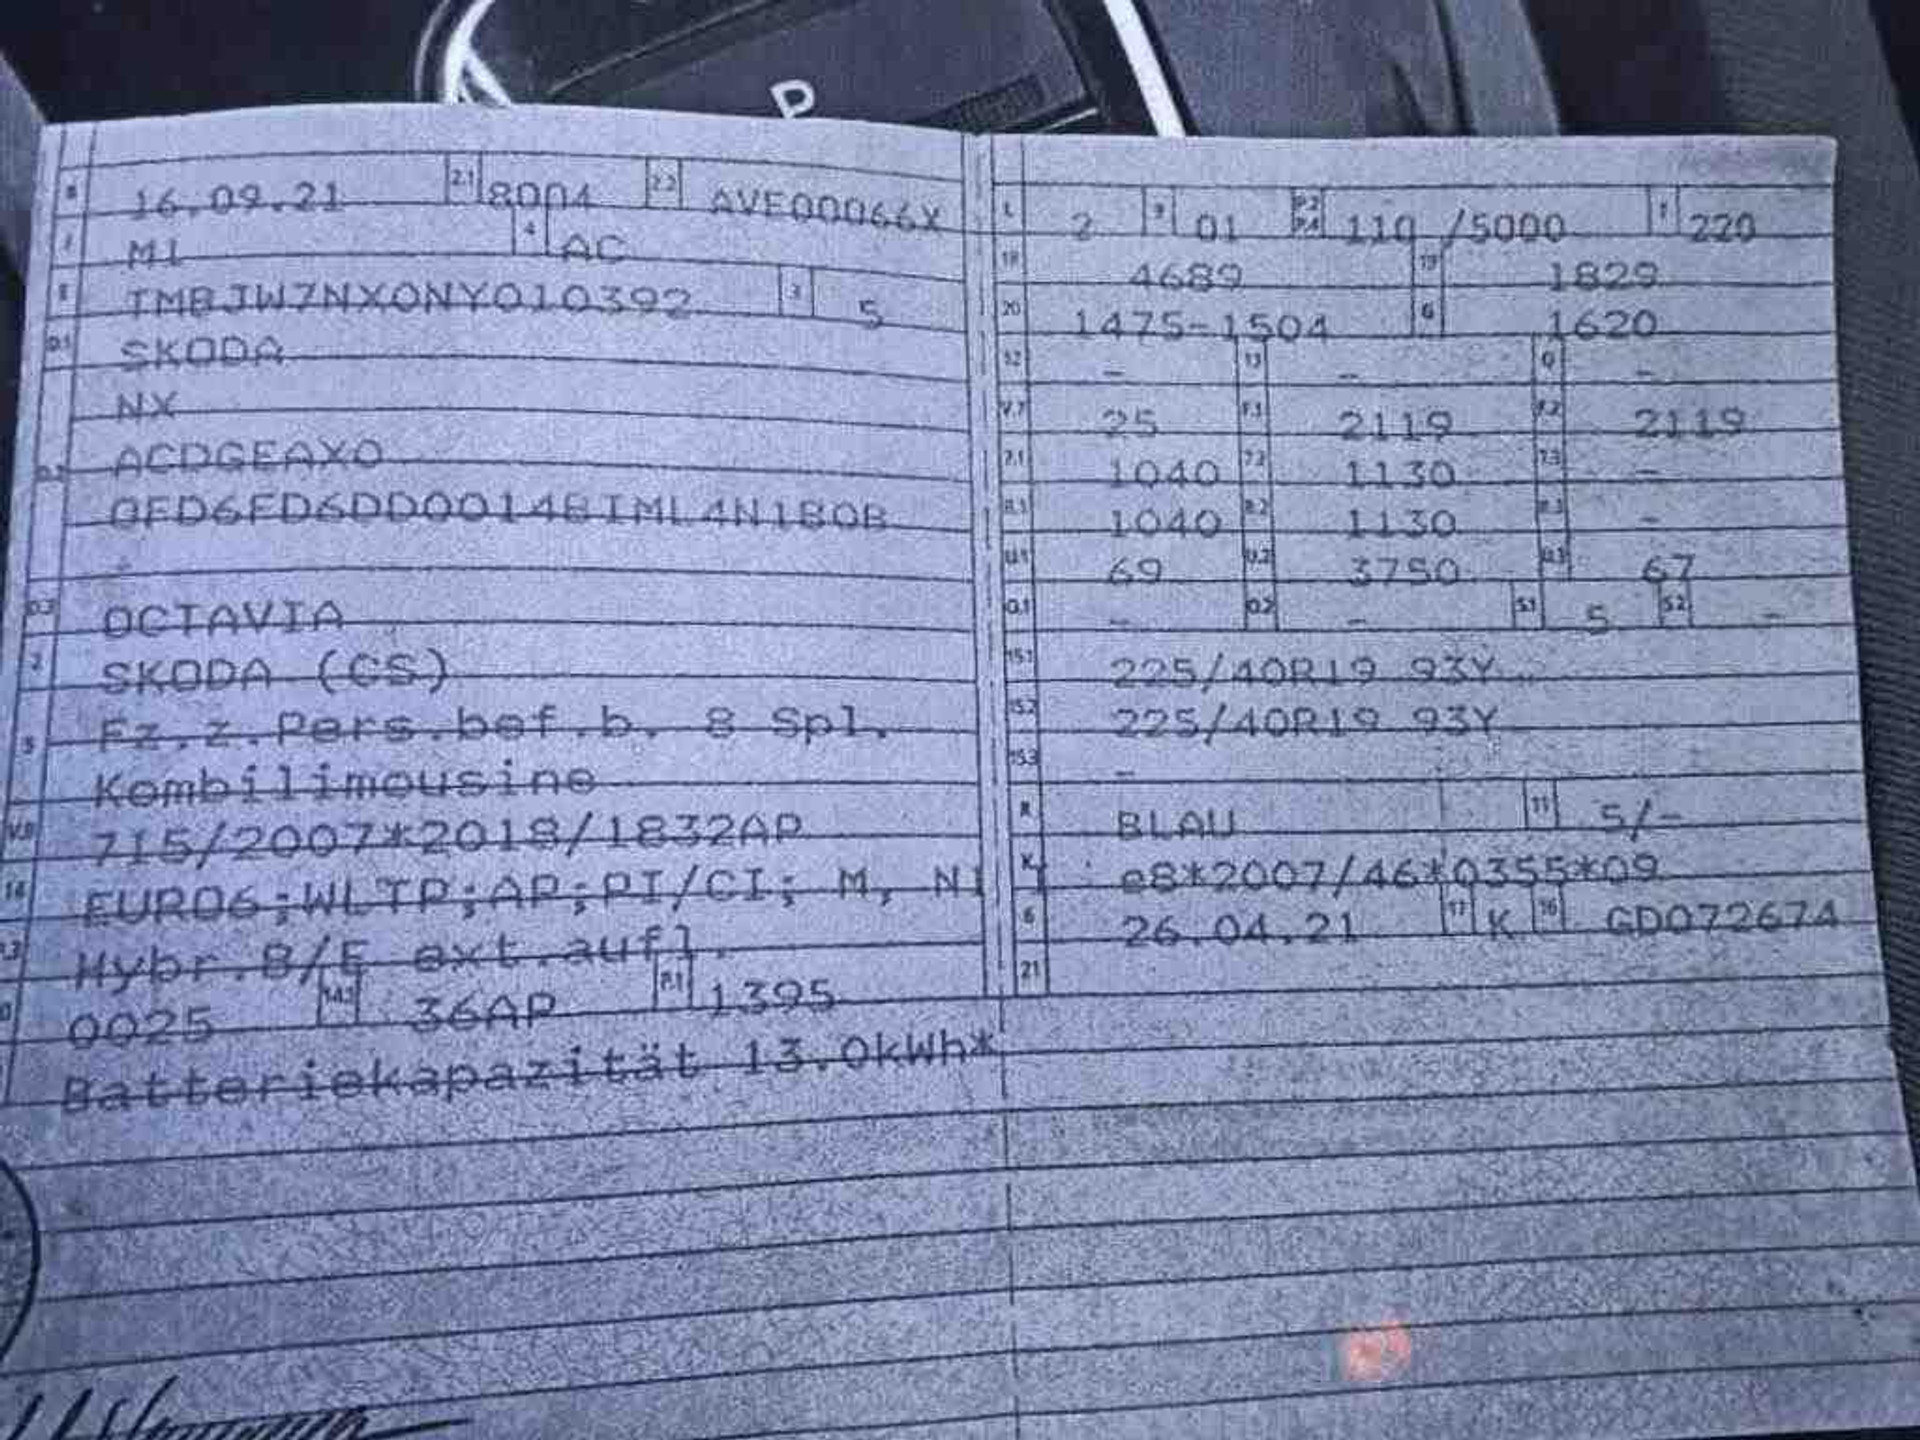 P
B 16.09.21 2.1 8004 2.2 AVE00066X
J M1 4 AC
E TMBJW7NX0NY010392 3 5
D.1 SKODA
NX
D.2 ACDGEAX0
QFD6FD6DD0014BIML4N1BOB
-
D.3 OCTAVIA
2 SKODA (CS)
5 Fz.z.Pers.bef.b. 8 Spl.
Kombilimousine
V.9 715/2007*2018/1832AP
14 EURO6;WLTP;AP;PI/CI; M, N1 I
P.3 Hybr.B/E ext.aufl.
10 0025 14.1 36AP P.1 1395
Batteriekapazität 13.0kWh*
L 2 9 01 P.2 P.4 110 /5000 T 220
18 4689 19 1829
20 1475-1504 G 1620
12 - 13 - Q -
V.7 25 F.1 2119 F.2 2119
7.1 1040 7.2 1130 7.3 -
8.1 1040 8.2 1130 8.3 -
U.1 69 U.2 3750 U.3 67
O.1 - O.2 - S.1 5 S.2 -
15.1 225/40R19 93Y
15.2 225/40R19 93Y
15.3 -
R BLAU 11 5/-
K e8*2007/46*0355*09
6 26.04.21 17 K 16 GD072674
21